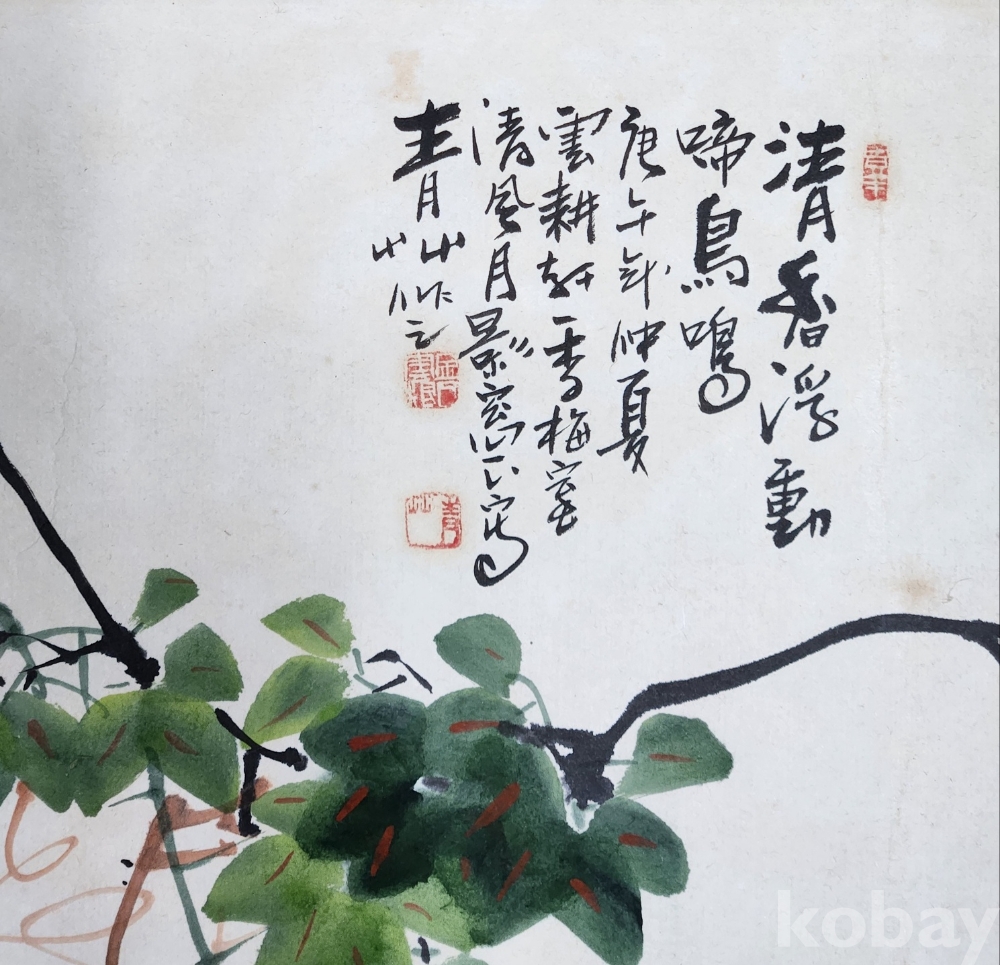 清香浮動
啼鳥鳴
庚午年仲夏
雲耕軒雪梅窓
清風月影窓下寫
青山作之
青山
kobay